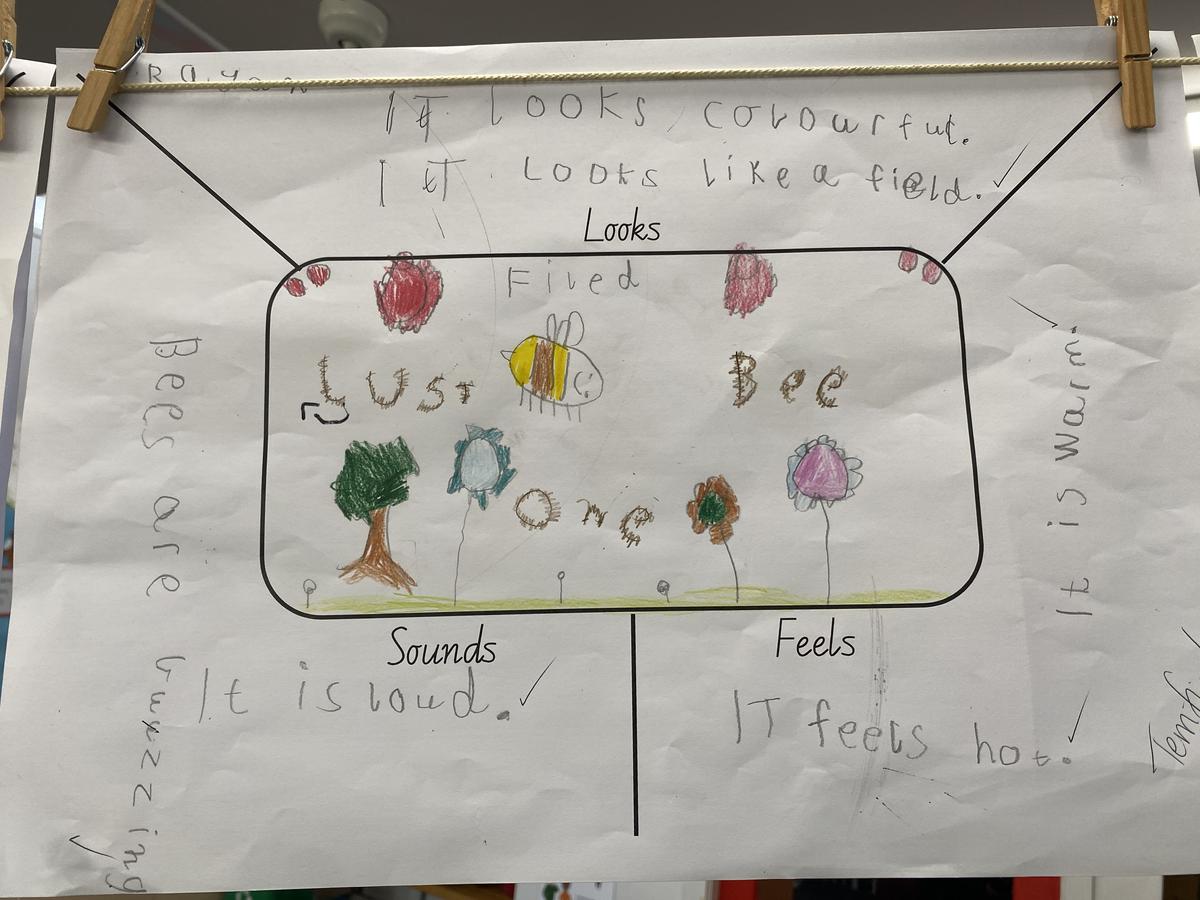 Rayan
IT looks colourful.
IT Looks like a field.
Looks
Filed
Lust Bee
One
Bees are buzzing
It is warm.
Sounds
Feels
It is loud.
IT feels hot.